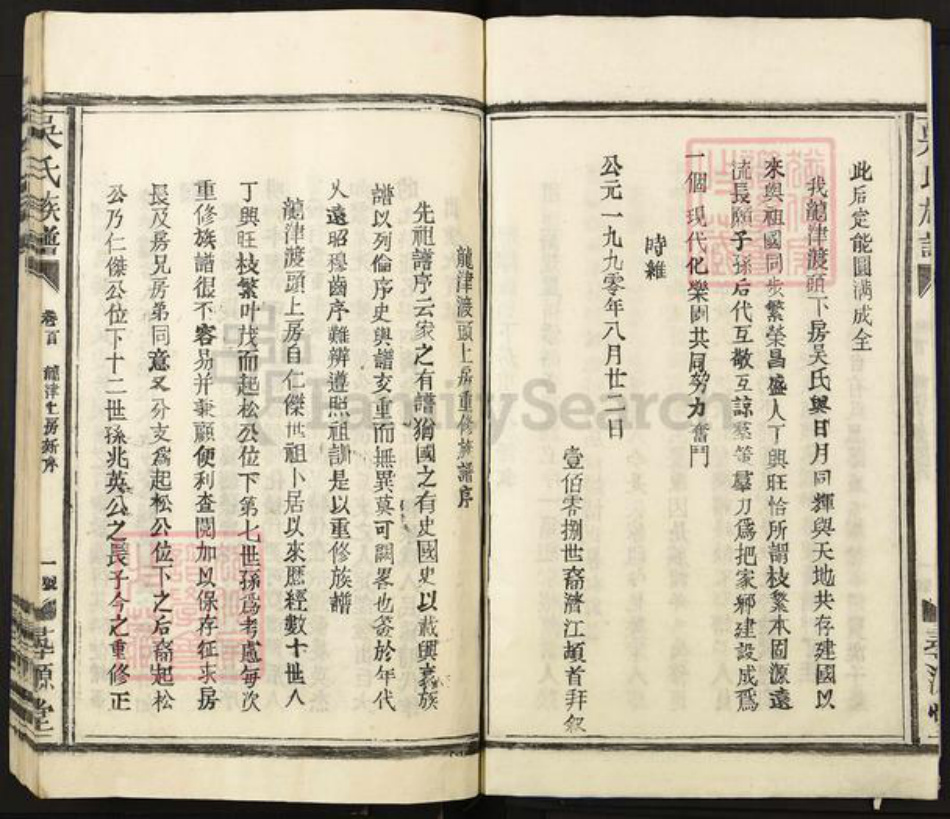 此后定能圓满成全
我龍津渡頭下房吳氏與日月同輝與天地共存建國以
來與祖國同步繁荣昌盛人丁興旺恰所謂枝繁本固源遠
流長願子孫后代互敬互諒羣策羣力爲把家鄉建設成爲
一個現代化樂園共同努力奮鬥
時維
公元一九九零年八月廿二日
壹佰零捌世裔濟江頓首拜叙
龍津渡頭上房重修族譜序
先祖譜序云家之有譜猶國之有史國史以載興衰族
譜以列倫序史與譜交重而無異莫可闊畧也葢於年代
乆遠昭穆齒序難辨遵照祖訓是以重修族譜
龍津渡頭上房自仁傑世祖卜居以來歷經數十世人
丁興旺枝繁叶茂而起松公位下第七世孫爲考慮每次
重修族譜很不容易并兼顧便利查閱加以保存征求房
長及房兄房弟同意又分支爲起松公位下之后裔起松
公乃仁傑公位下十二世孫兆英公之長子今之重修正
吳氏族譜
卷首
龍津上房新序
一號
孝源堂
FamilySearch